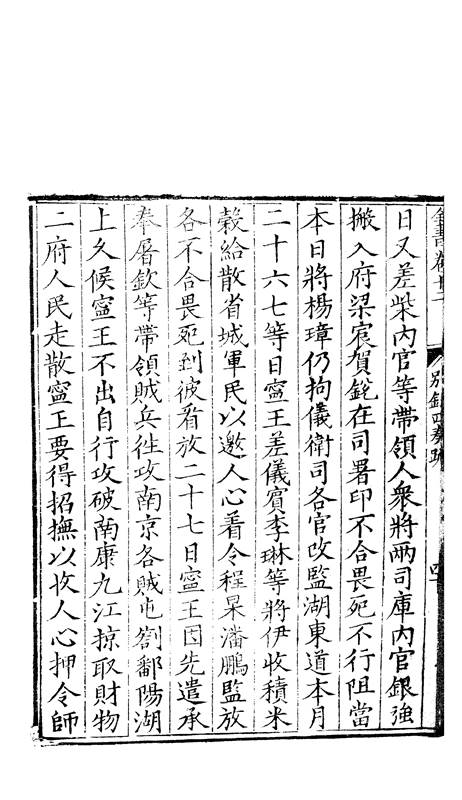 全書卷廿二　別錄四奏疏　四
日又差柴内官等帶領人衆將兩司庫内官銀强
搬入府梁宸賀銳在司署印不合畏死不行阻當
本日將楊璋仍拘儀衛司各官改監湖東道本月
二十六七等日寧王差儀賓李琳等將伊收積米
穀給散省城軍民以邀人心着令程杲潘鵬監放
各不合畏死到彼看放二十七日寧王因先遣承
奉屠欽等帶領賊兵徃攻南京各賊屯劄鄱陽湖
上久候寧王不出自行攻破南康九江掠取財物
二府人民走散寧王要得招撫以收人心押令師